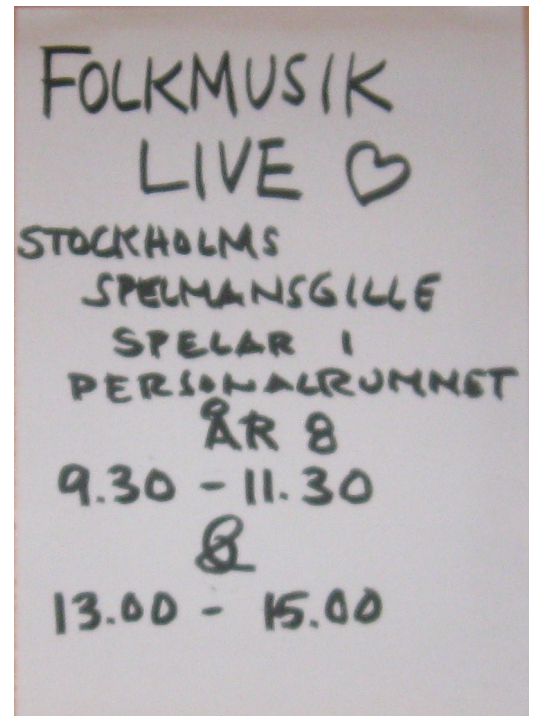 FOLKMUSIK
LIVE ♡
STOCKHOLMS
SPELMANSGILLE
SPELAR I
PERSONALRUMMET
ÅR 8
9.30 - 11.30
&
13.00 - 15.00